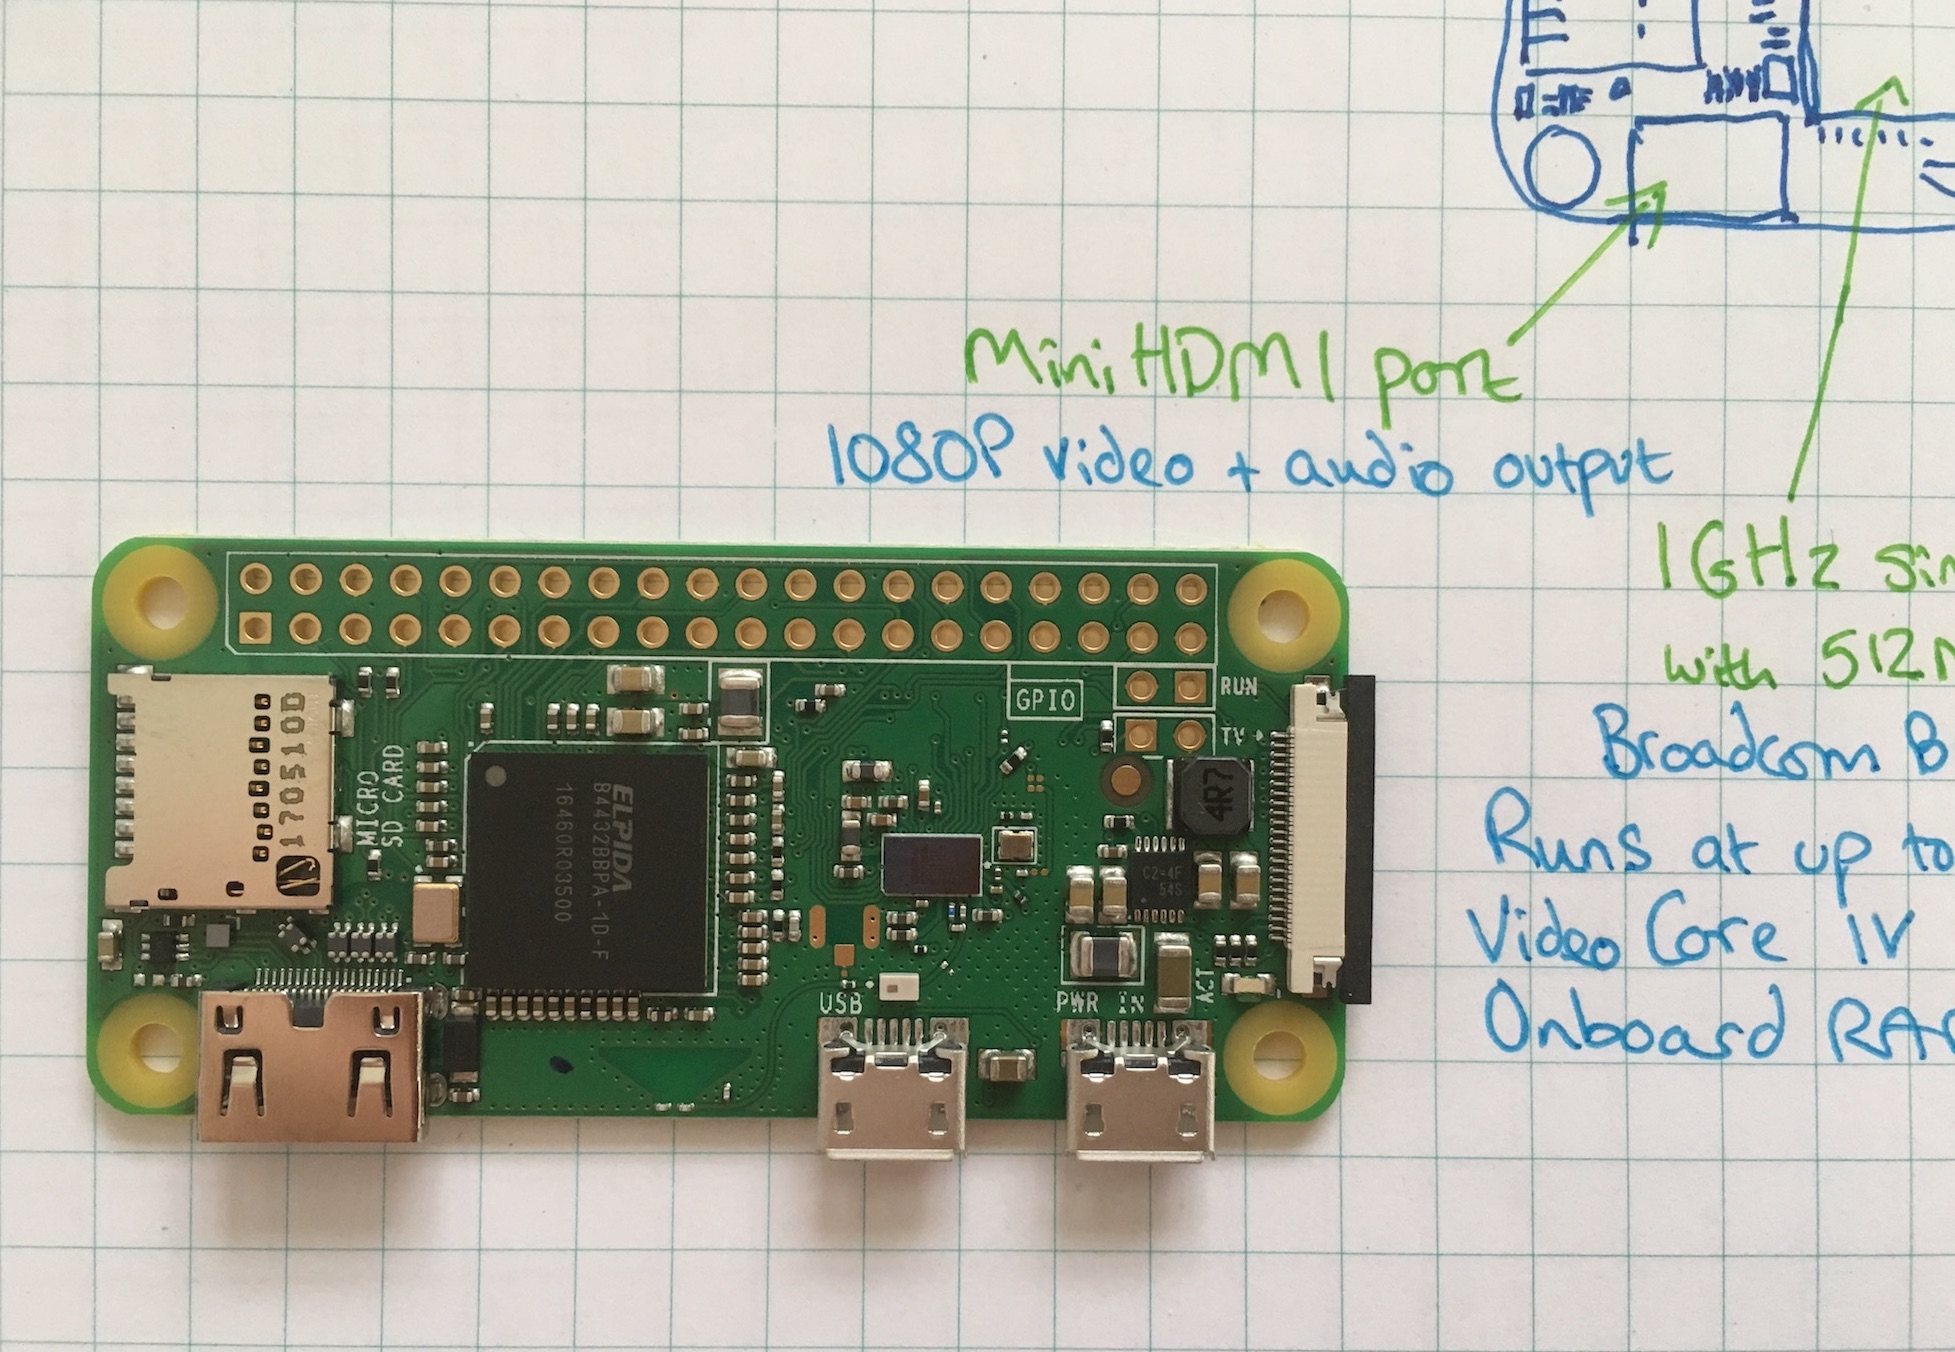 Mini HDMI port
1080P video + audio output
1GHz sin
with 512M
Broadcom B
Runs at up to
Video Core IV
Onboard RA
GPIO
RUN
TV
170510D
MICRO
SD CARD
ELPIDA
B4432BBPA-1D-F
16460R03500
4R7
C2=4F
54S
USB
PWR IN
ACT